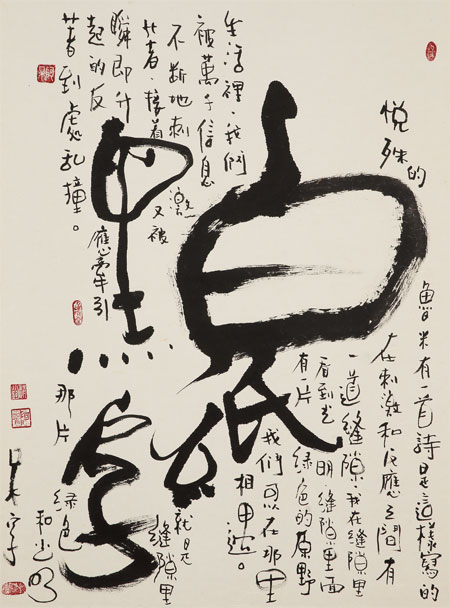 白紙
黑字
魯米有一首詩是這樣寫的
在刺激和反應之間有
一道縫隙,我在縫隙里
看到光明,縫隙里面
有一片绿色的原野
我們可以在那里
相
生活裡、我們
被萬千信息
不断地刺激
着、接着又被
瞬即升
起的反應牽引
着到處乱撞。
就是縫隙里
那片绿色和光明